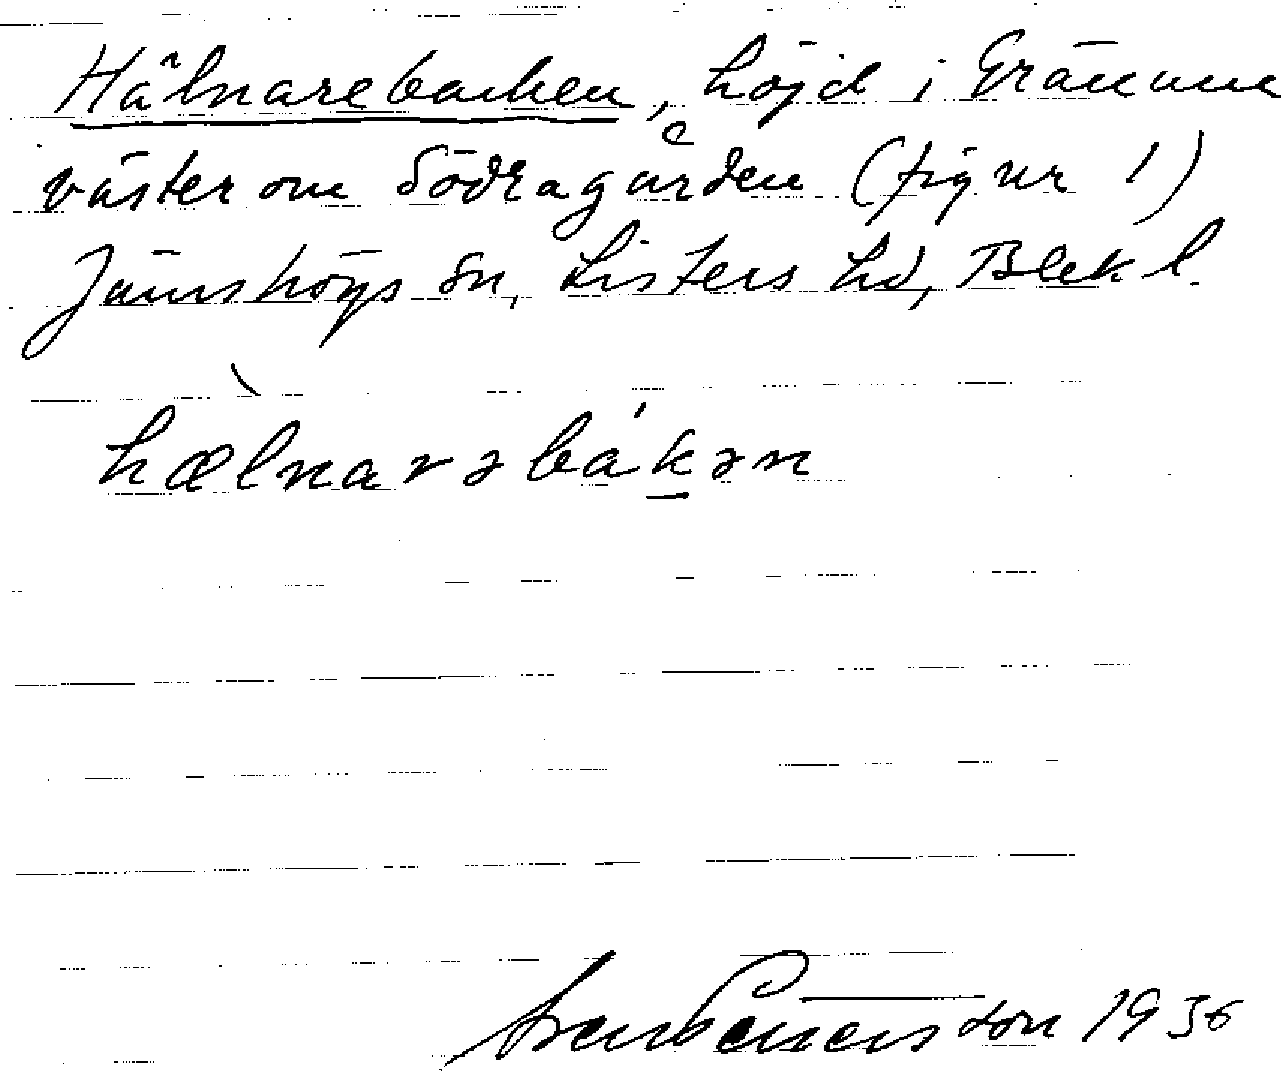 Hâlnarebacken, höjd i Gränum
väster om Södragården (figur 1)
Jämshögs sn, Listers hd, Blek l.
hælnarəbákən
Sven Benson 1936